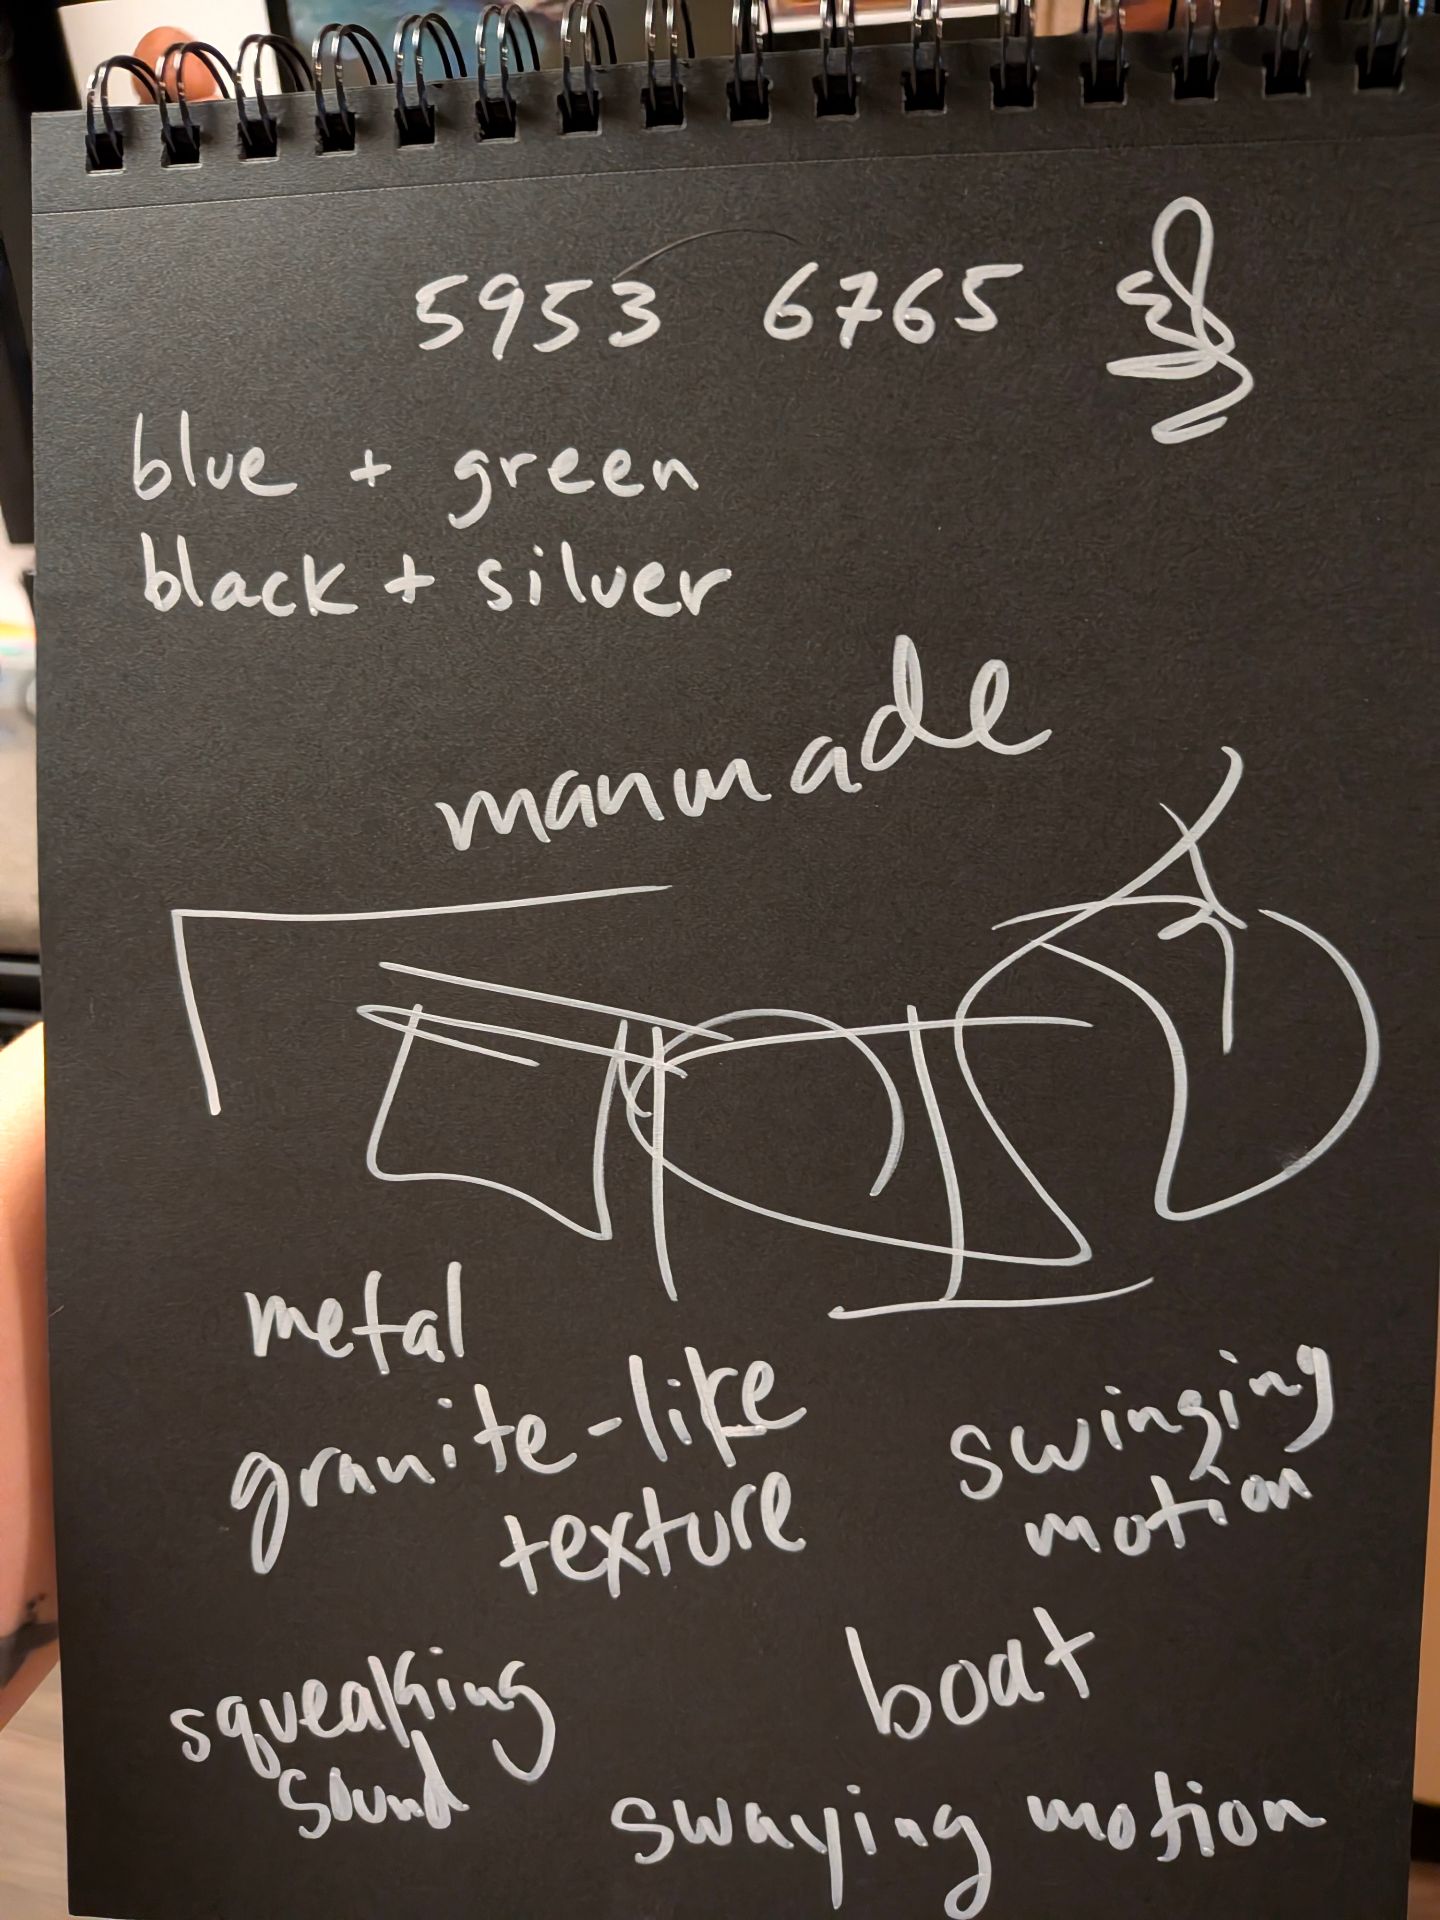 5953 6765
blue + green
black + silver
manmade
metal
granite-like
texture
swinging
motion
squeaking
sound
boat
swaying motion